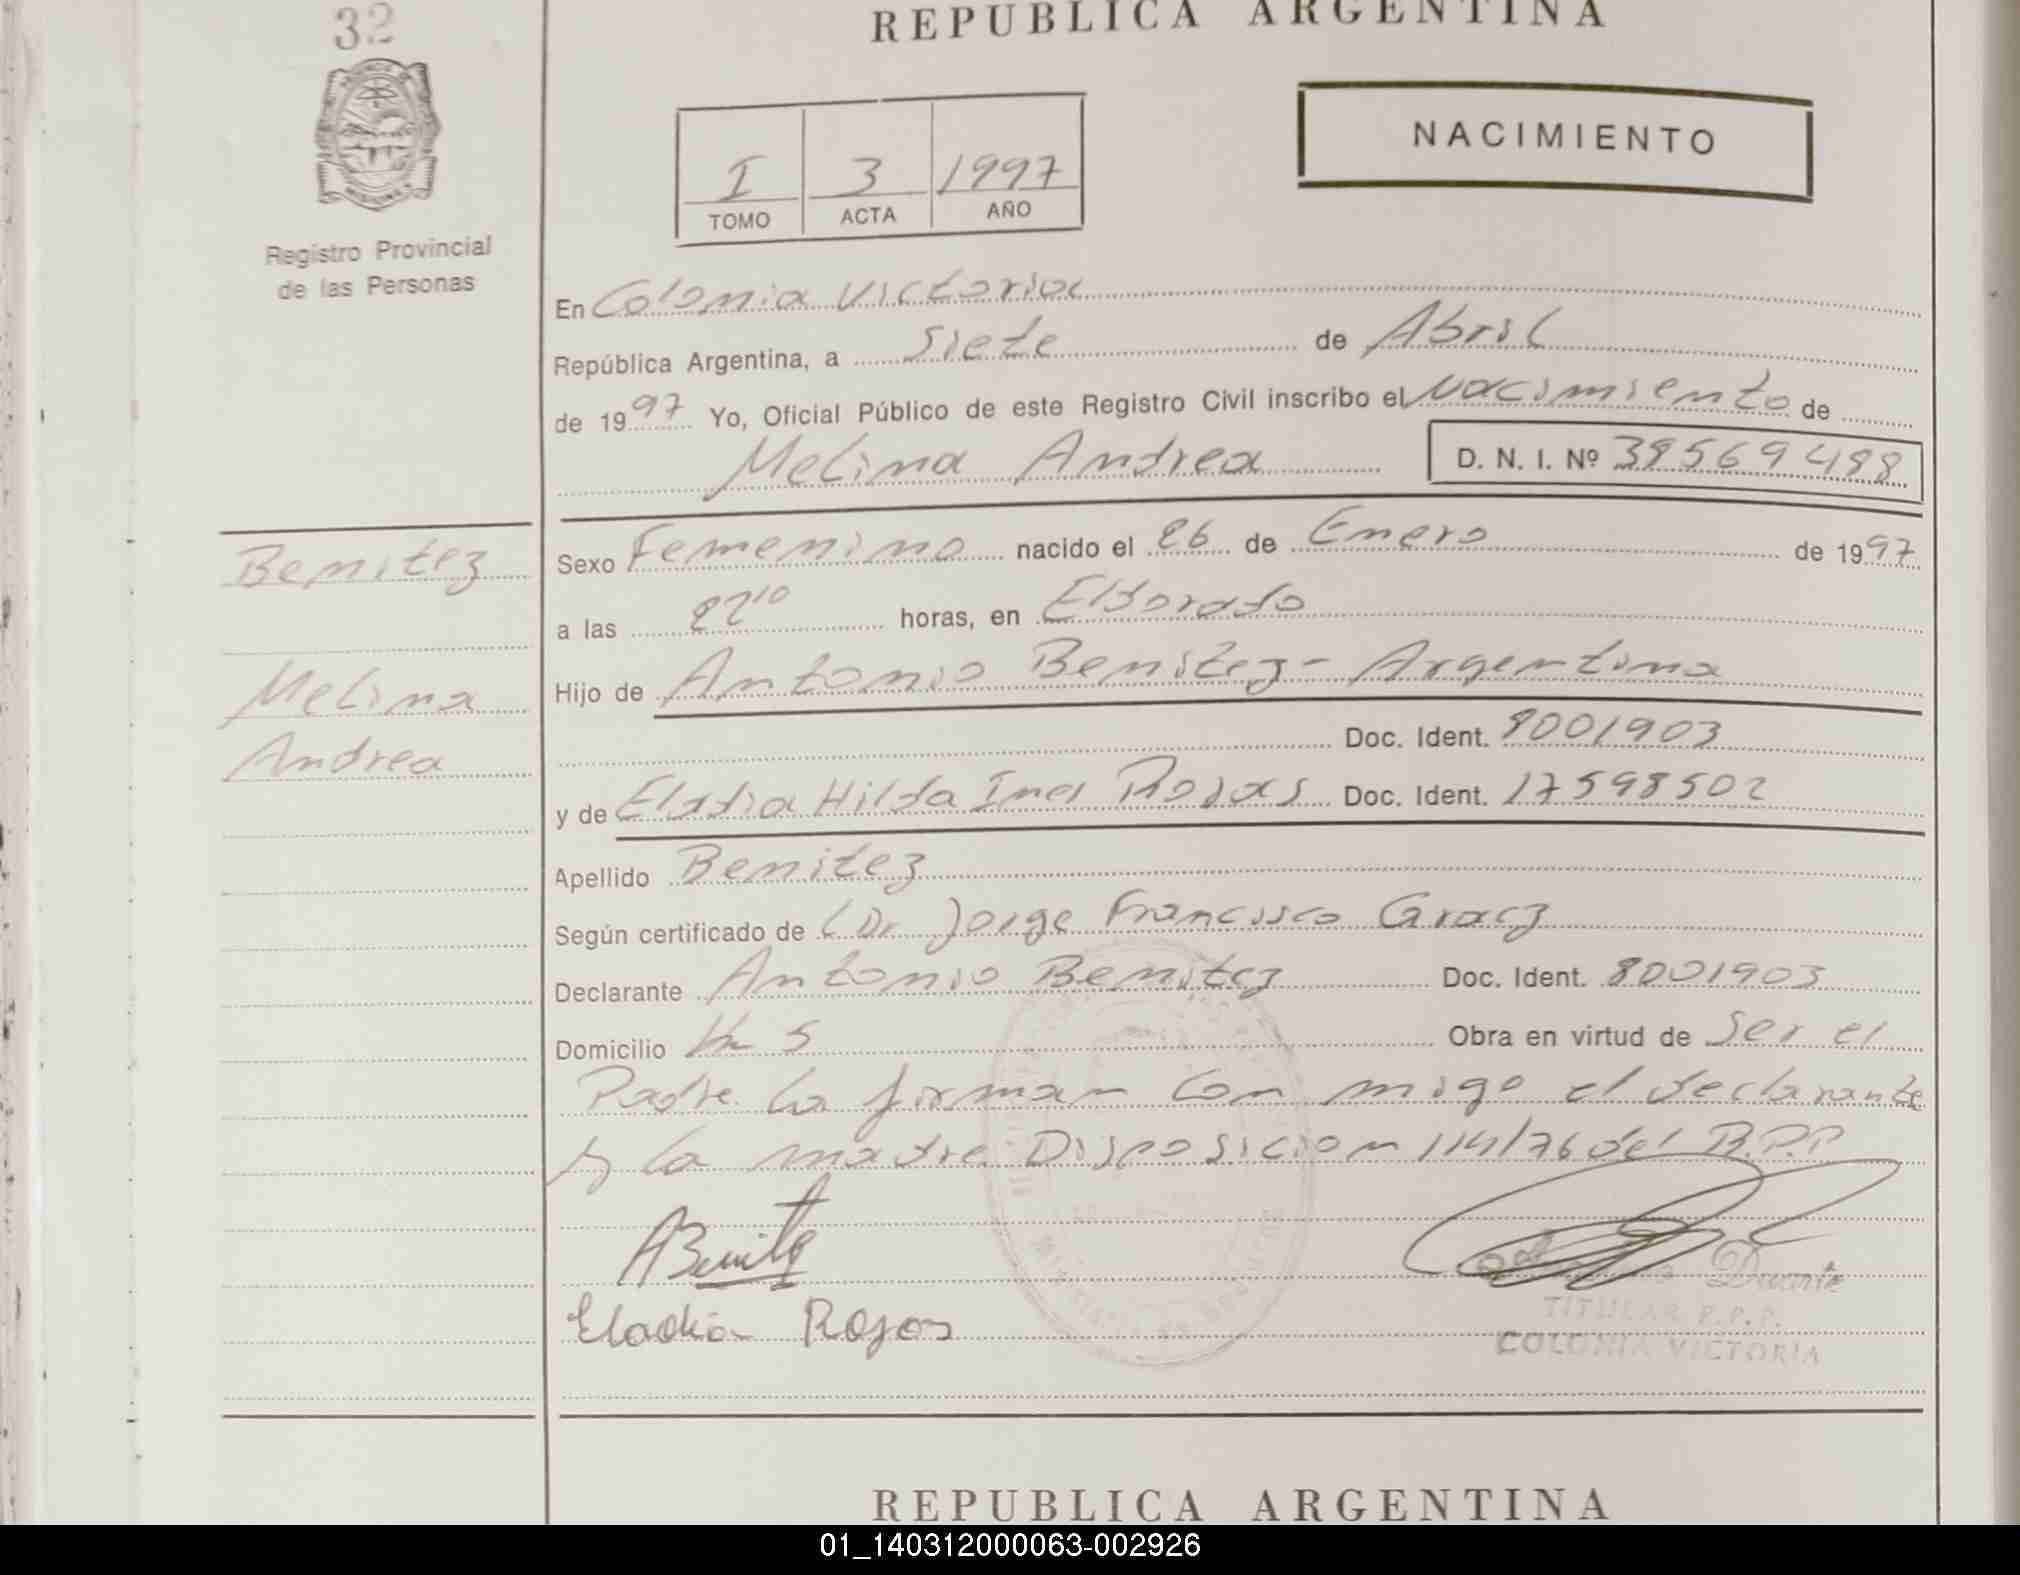 32
REPUBLICA ARGENTINA
NACIMIENTO
I 3 1997
TOMO ACTA AÑO
Registro Provincial
de las Personas
En Colonia Victoria
República Argentina, a Siete de Abril
de 1997 Yo, Oficial Público de este Registro Civil inscribo el Nacimiento de
Melina Andrea D. N. I. Nº
Benitez
Sexo Femenino nacido el 26 de Enero de 1997
a las 22 10 horas, en Eldorado
Melina
Hijo de Antonio Benitez - Argentina
Doc. Ident. 8001903
Andrea
y de Eladia Hilda Ines Rojas Doc. Ident. 17598502
Apellido Benitez
Según certificado de Dr Jorge Francisco
Declarante Antonio Benitez Doc. Ident. 8001903
Domicilio Km 5 Obra en virtud de Ser el
Padre La firman con migo el declarante
y La madre Disposicion 114/76 del R.P.P
ABenitez
Duarte
Eladia Rojas
TITULAR R.P.P.
COLONIA VICTORIA
REPUBLICA ARGENTINA
01_140312000063-002926